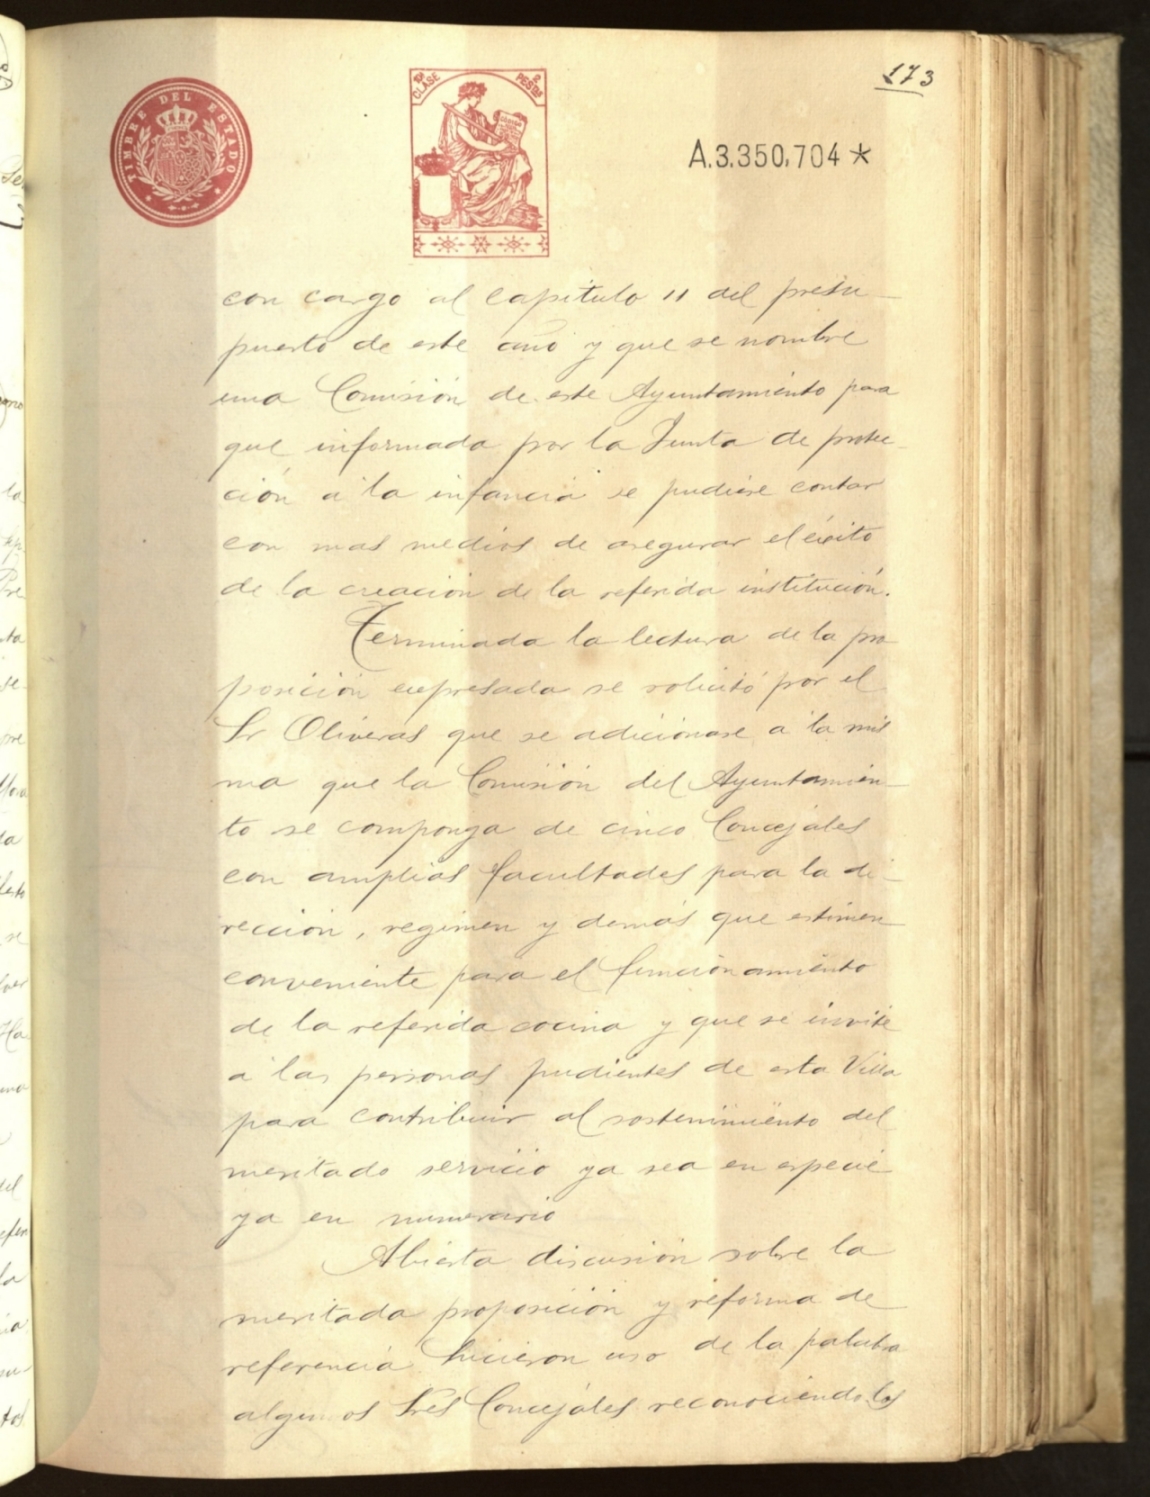 173
TIMBRE DEL ESTADO
10ª CLASE 2 PESETAS
A.3.350,704 *
con cargo al capitulo 11 del presu-
puesto de este año y que se nombre
una Comisión de este Ayuntamiento para
que informada por la Junta de protec-
ción á la infancia se pudiese contar
con mas medios de asegurar el éxito
de la creación de la referida institución.
Terminada la lectura de la pro
posición expresada se solicitó por el
Sr Oliveras que se adicionase á la mis
ma que la Comisión del Ayuntamien-
to se componga de cinco Concejales
con amplias facultades para la di-
rección, regimen y demás que estimen
conveniente para el funcionamiento
de la referida cocina y que se invite
á las personas pudientes de esta Villa
para contribuir al sostenimiento del
meritado servicio ya sea en especie
ya en numerario
Abierta discusión sobre la
meritada proposición y reforma de
referencia hicieron uso de la palabra
algunos Sres Concejales reconociendo los